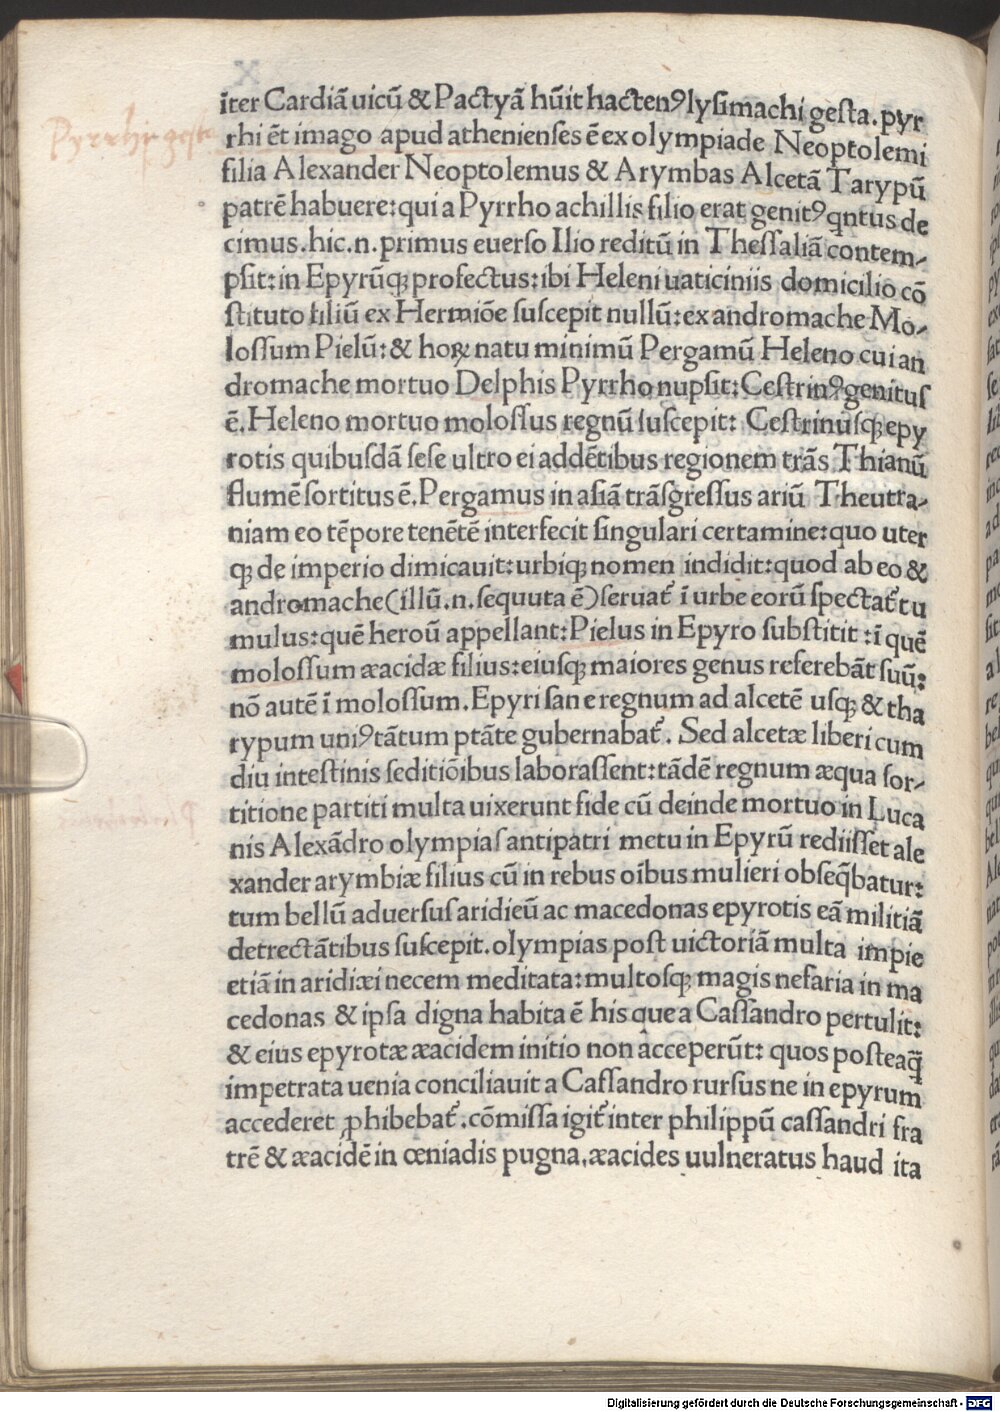 Pyrrhi gesta
īter Cardiā uicū & Pactyā hūit hactenꝰ lysimachi gesta. pyr
rhi ēt imago apud athenienses ē ex olympiade Neoptolemi
filia Alexander Neoptolemus & Arymbas Alcetā Tarypū
patrē habuere: qui a Pyrrho achillis filio erat genitꝰ qntus de
cimus. hic .n. primus euerso Ilio reditū in Thessaliā contem-
psit: in Epyrūqꝫ profectus: ibi Heleni uaticiniis domicilio cō
stituto filiū ex Hermiōe suscepit nullū: ex andromache Mo-
lossum Pielū: & hoꝝ natu minimū Pergamū Heleno cui an
dromache mortuo Delphis Pyrrho nupsit: Cestrinꝰ genitus
ē. Heleno mortuo molossus regnū suscepit: Cestrinusqꝫ epy
rotis quibusdā sese ultro ei addētibus regionem trās Thianū
flumē sortitus ē. Pergamus in asiā trāsgressus ariū Theutra-
niam eo tēpore tenētē interfecit singulari certamine: quo uter
qꝫ de imperio dimicauit: urbiqꝫ nomen indidit: quod ab eo &
andromache (illū .n. sequuta ē) seruat̃ ī urbe eorū spectat̃ tu
mulus: quē heroū appellant: Pielus in Epyro substitit: ī quē
molossum æacidæ filius: eiusqꝫ maiores genus referebāt suū:
nō autē ī molossum. Epyri sane regnum ad alcetē usqꝫ & tha
rypum uniꝰ tātum ptāte gubernabat̃. Sed alcetæ liberi cum
diu intestinis seditiōibus laborassent: tādē regnum æqua sor-
titione partiti multa uixerunt fide cū deinde mortuo in Luca
nis Alexādro olympias antipatri metu in Epyrū rediisset ale
xander arymbiæ filius cū in rebus oībus mulieri obseq̄batur:
tum bellū aduersus aridieū ac macedonas epyrotis eā militiā
detrectātibus suscepit. olympias post uictoriā multa impie
etiā in aridiæi necem meditata: multosqꝫ magis nefaria in ma
cedonas & ipsa digna habita ē his que a Cassandro pertulit:
& eius epyrotæ æacidem initio non acceperūt: quos posteaq̄
impetrata uenia conciliauit a Cassandro rursus ne in epyrum
accederet ꝓhibebat̃. cōmissa igit̃ inter philippū cassandri fra
trē & æacidē in œniadis pugna, æacides uulneratus haud ita
Digitalisierung gefördert durch die Deutsche Forschungsgemeinschaft - DFG